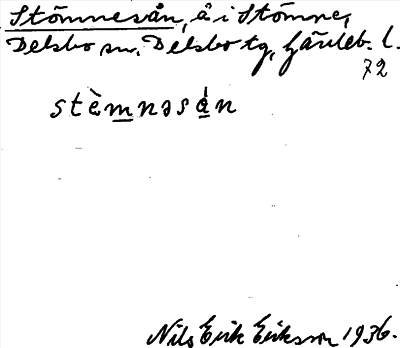 Stömnesån, å i Stömne,
Delsbo sn. Delsbo tg, Gävleb. l.
72
stèmnəsån
Nils Erik Eriksson 1936.